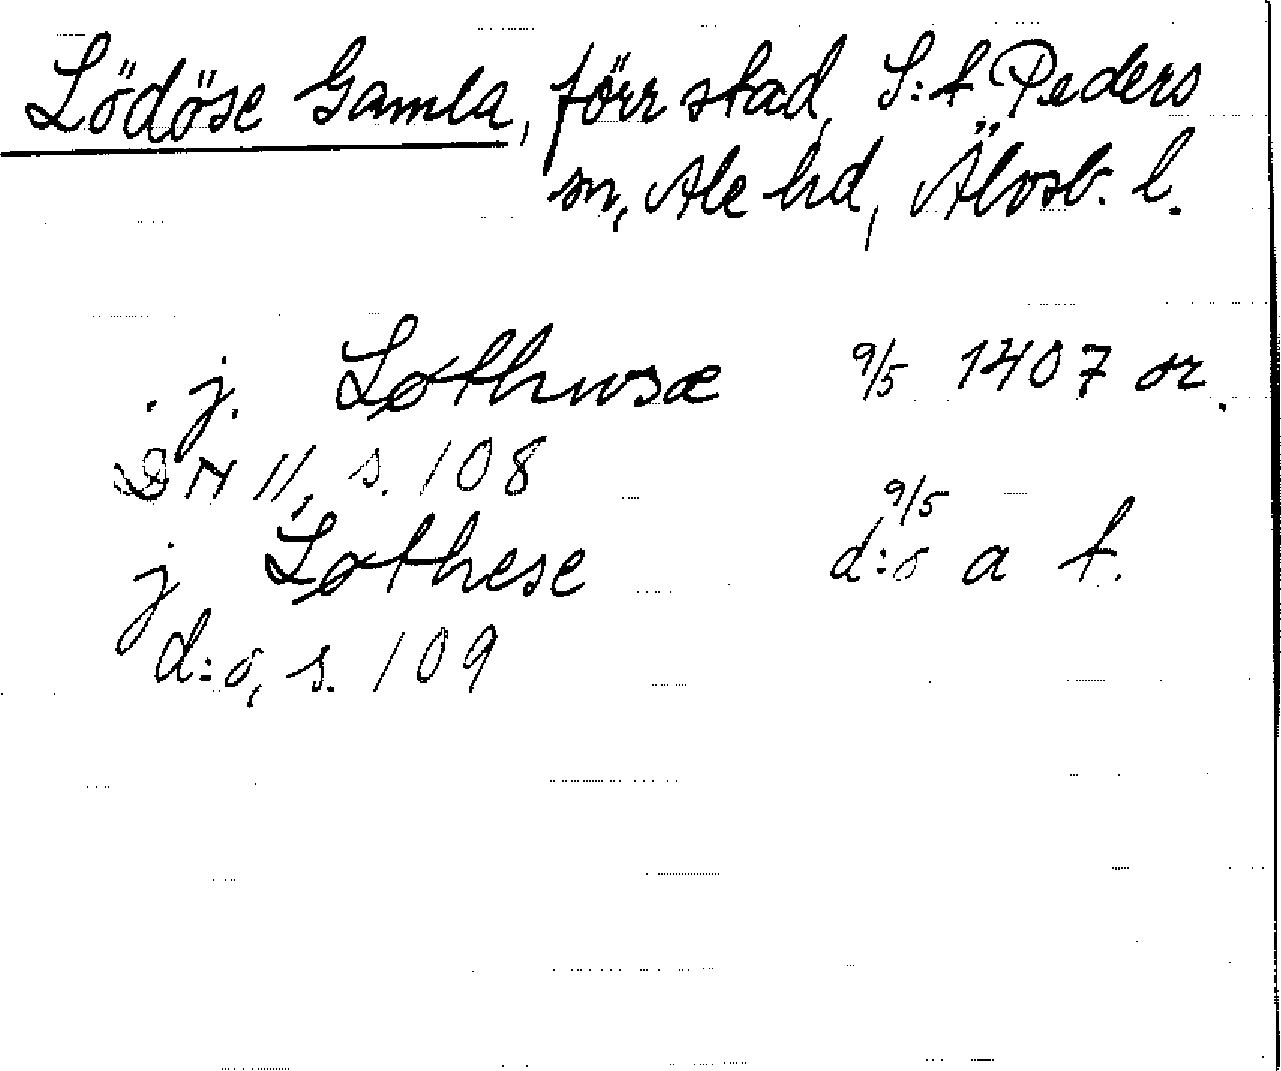 Lödöse Gamla, förr stad, S:t Peders
sn, Ale hd, Älvsb. l.
j. Løthusæ 9/5 1407 or.
DN II, s. 108
j Løthese 9/5 d:o a f.
d:o, s. 109